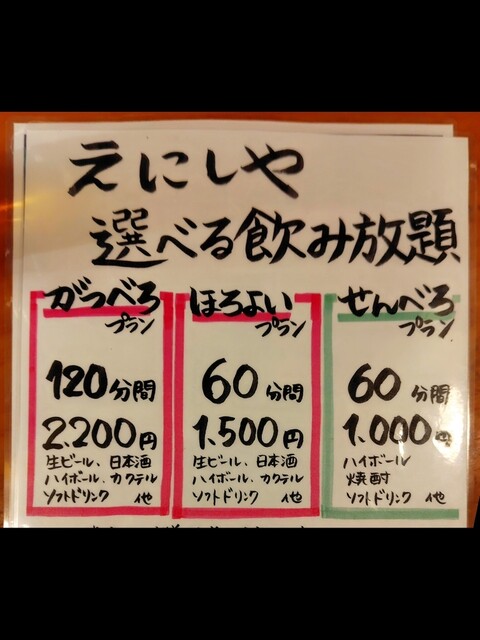 えにしや
選べる飲み放題
がつべろ
プラン
120分間
2.200円
生ビール、日本酒
ハイボール、カクテル
ソフトドリンク 他
ほろよい
プラン
60分間
1.500円
生ビール、日本酒
ハイボール、カクテル
ソフトドリンク 他
せんべろ
プラン
60分間
1.000円
ハイボール
焼酎
ソフトドリンク 他